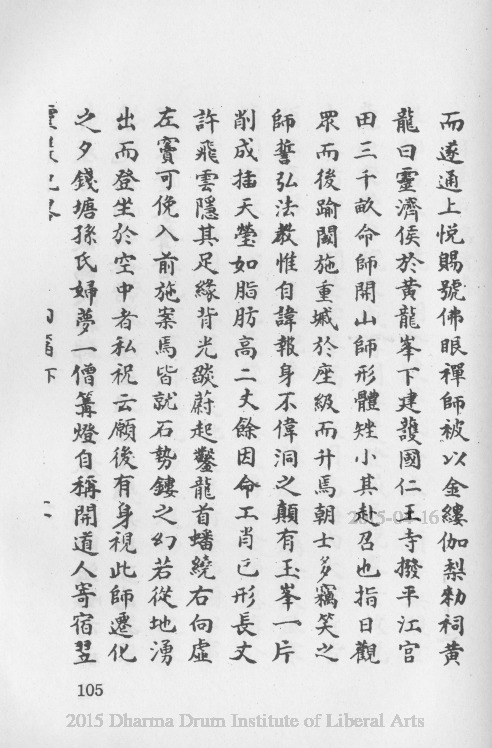 而遂通上悅賜號佛眼禪師被以金縷伽梨勑祠黃
龍曰靈濟侯於黃龍峯下建護國仁王寺撥平江官
田三千畝命師開山師形體矬小其赴召也指日觀
眾而後踰閾施重墄於座級而升焉朝士多竊笑之
師誓弘法教惟自諱報身不偉洞之顛有玉峯一片
削成插天瑩如脂肪高二丈餘因命工肖己形長丈
許飛雲隱其足緣背光燄蔚起鑿龍首蟠繞右向虛
左竇可俛入前施案焉皆就石勢鏤之幻若從地湧
出而登坐於空中者私祝云願後有身視此師遷化
之夕錢塘孫氏婦夢一僧篝燈自稱開道人寄宿翌
105
2015-04-16
2015 Dharma Drum Institute of Liberal Arts